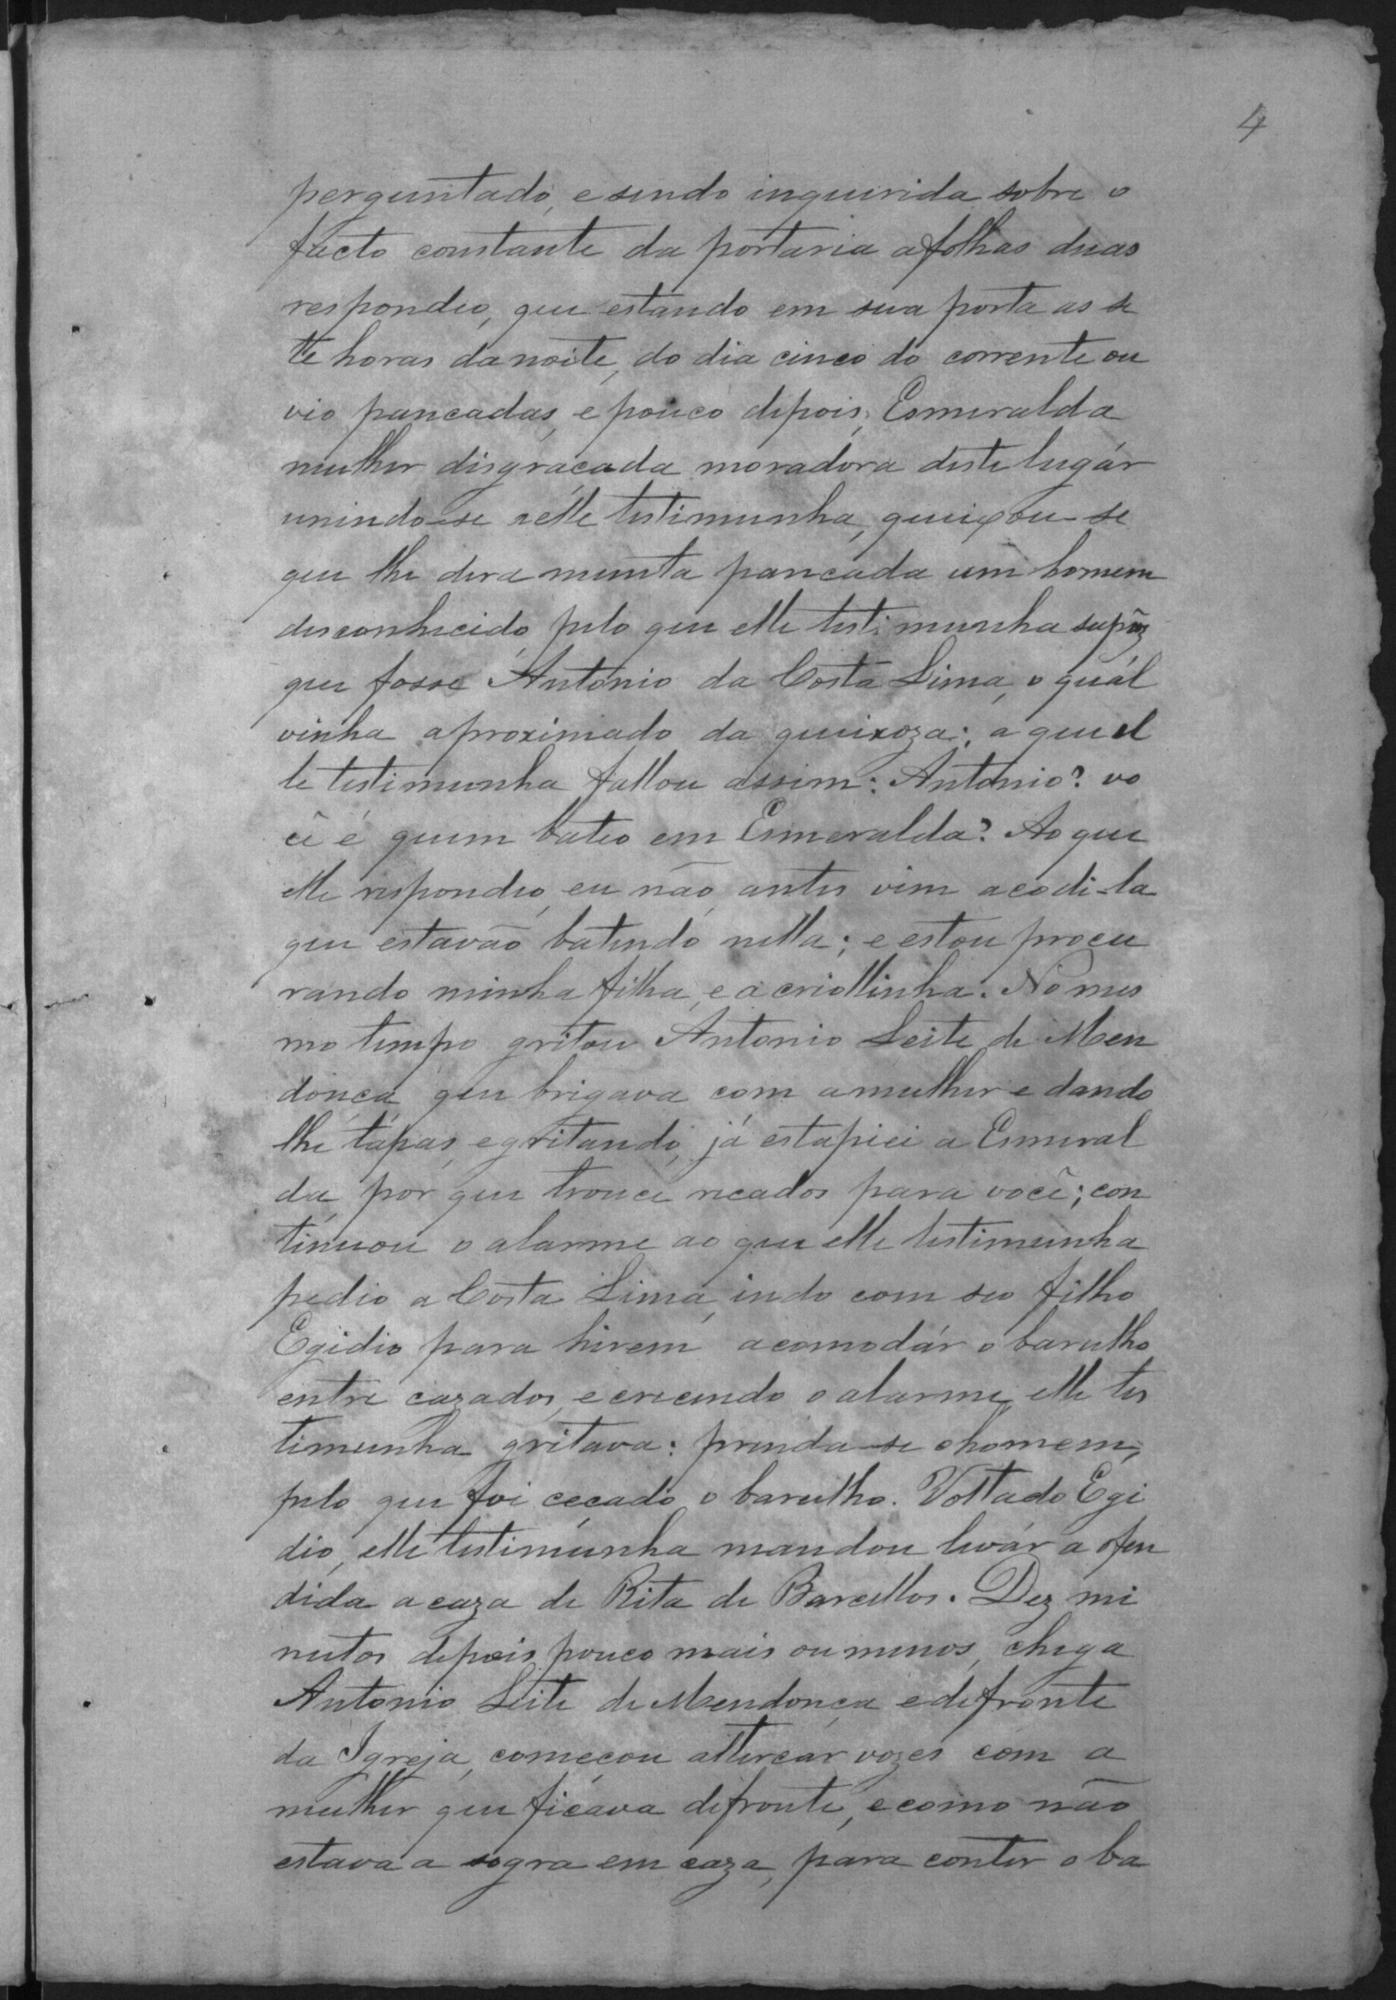 4
perguntado, e sendo inquirida sobre o
facto constante da portaria a folhas duas
respondeo, que estando em sua porta as se
te horas da noite, do dia cinco do corrente ou
vio pancadas, e pouco depois, Esmeralda
mulher disgraçada moradora deste lugár
unindo-se a elle testimunha, queixou-se
que lhe dera muinta pancada um homem
desconhecido, pelo que elle testimunha supôz
que fosse Antonio da Costa Lima, o quál
vinha aproximado da queixoza; a que el
le testimunha fallou assim: Antonio? vo
cê é quem bateo em Esmeralda? Ao que
elle respondeo, eu não, antes vim acodi-la
que estavão batendo nella; e estou procu
rando minha filha, e a criollinha. No mes
mo tempo gritou Antonio Leite de Men
donça que brigava com a mulher e dando
lhe tápas, e gritando, já estapiei a Esmeral
da, por que trouce recados para você; con
tinuou o alarme ao que elle testimunha
pedio a Costa Lima, indo com seo filho
Egidio para hirem acomodár o barulho
entre cazados, e crecendo o alarme, elle tes
timunha gritava: prenda-se o homem,
pelo que foi cecado o barulho. Voltado Egi
dio, elle testimunha mandou levár a ofen
dida a caza de Rita de Barcellos. Dez mi
nutos depois pouco mais ou menos, chega
Antonio Leite de Mendonça e defronte
da Igreja, começou altercár vozes com a
mulher que ficava defronte, e como não
estava a sogra em caza, para conter o ba